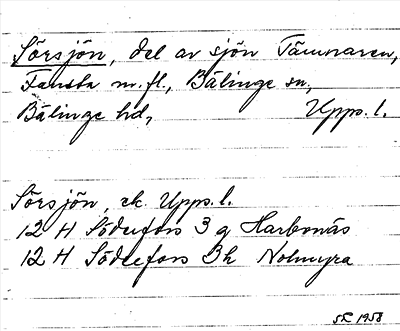 Sörsjön, del av sjön Tämnaren,
Fansta m.fl., Bälinge sn,
Bälinge hd, Upps. l.
Sörsjön, ek. Upps. l.
12 H Söderfors 3 g Harbonäs
12 H Söderfors 3h Nolmyra
1958